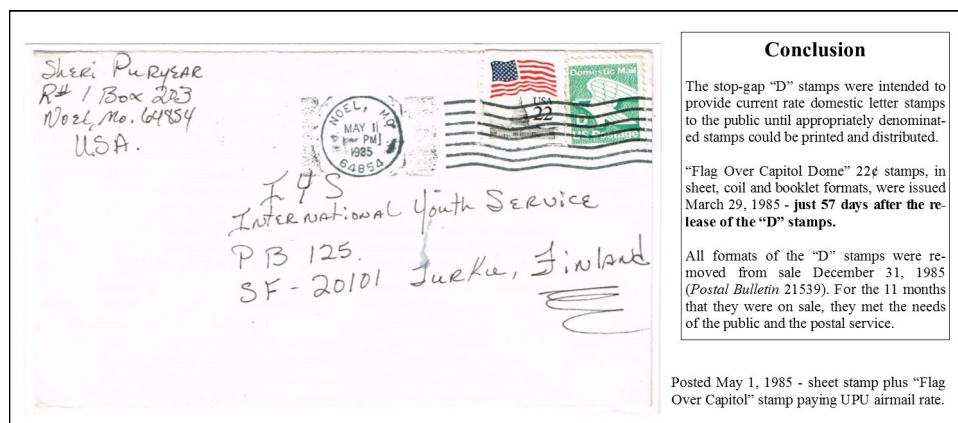 Sheri Puryear
R# 1 Box 203
Noel, Mo. 64854
USA.
NOEL, MO.
MAY 1
PM
1985
64854
USA
22
Domestic Mail
D
US Postage
IYS
International Youth Service
PB 125.
SF-20101 Turku, Finland
Conclusion
The stop-gap “D” stamps were intended to
provide current rate domestic letter stamps
to the public until appropriately denominat-
ed stamps could be printed and distributed.
“Flag Over Capitol Dome” 22¢ stamps, in
sheet, coil and booklet formats, were issued
March 29, 1985 - just 57 days after the re-
lease of the “D” stamps.
All formats of the “D” stamps were re-
moved from sale December 31, 1985
(Postal Bulletin 21539). For the 11 months
that they were on sale, they met the needs
of the public and the postal service.
Posted May 1, 1985 - sheet stamp plus “Flag
Over Capitol” stamp paying UPU airmail rate.